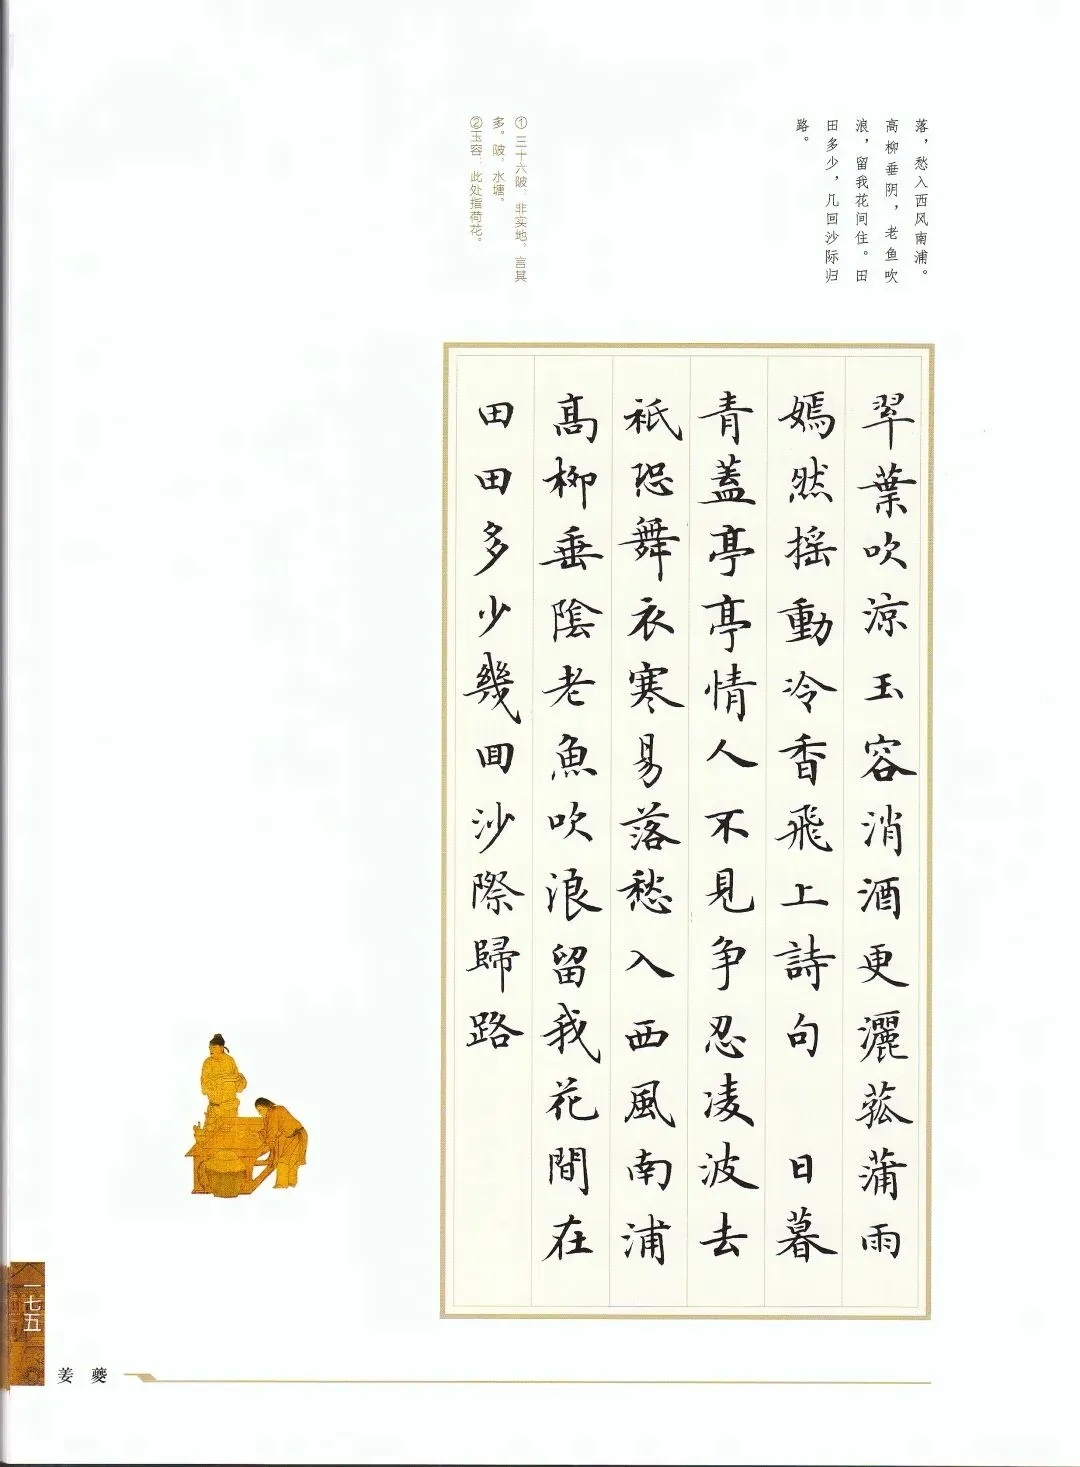 落，愁入西风南浦。
高柳垂阴，老鱼吹
浪，留我花间住。田
田多少，几回沙际归
路。
①三十六陂：非实地，言其
多。陂，水塘。
②玉容：此处指荷花。
翠葉吹涼玉容消酒更灑菰蒲雨
嫣然摇動冷香飛上詩句 日暮
青蓋亭亭情人不見争忍凌波去
衹恐舞衣寒易落愁入西風南浦
髙柳垂陰老魚吹浪留我花間在
田田多少幾回沙際歸路
一七五
姜夔